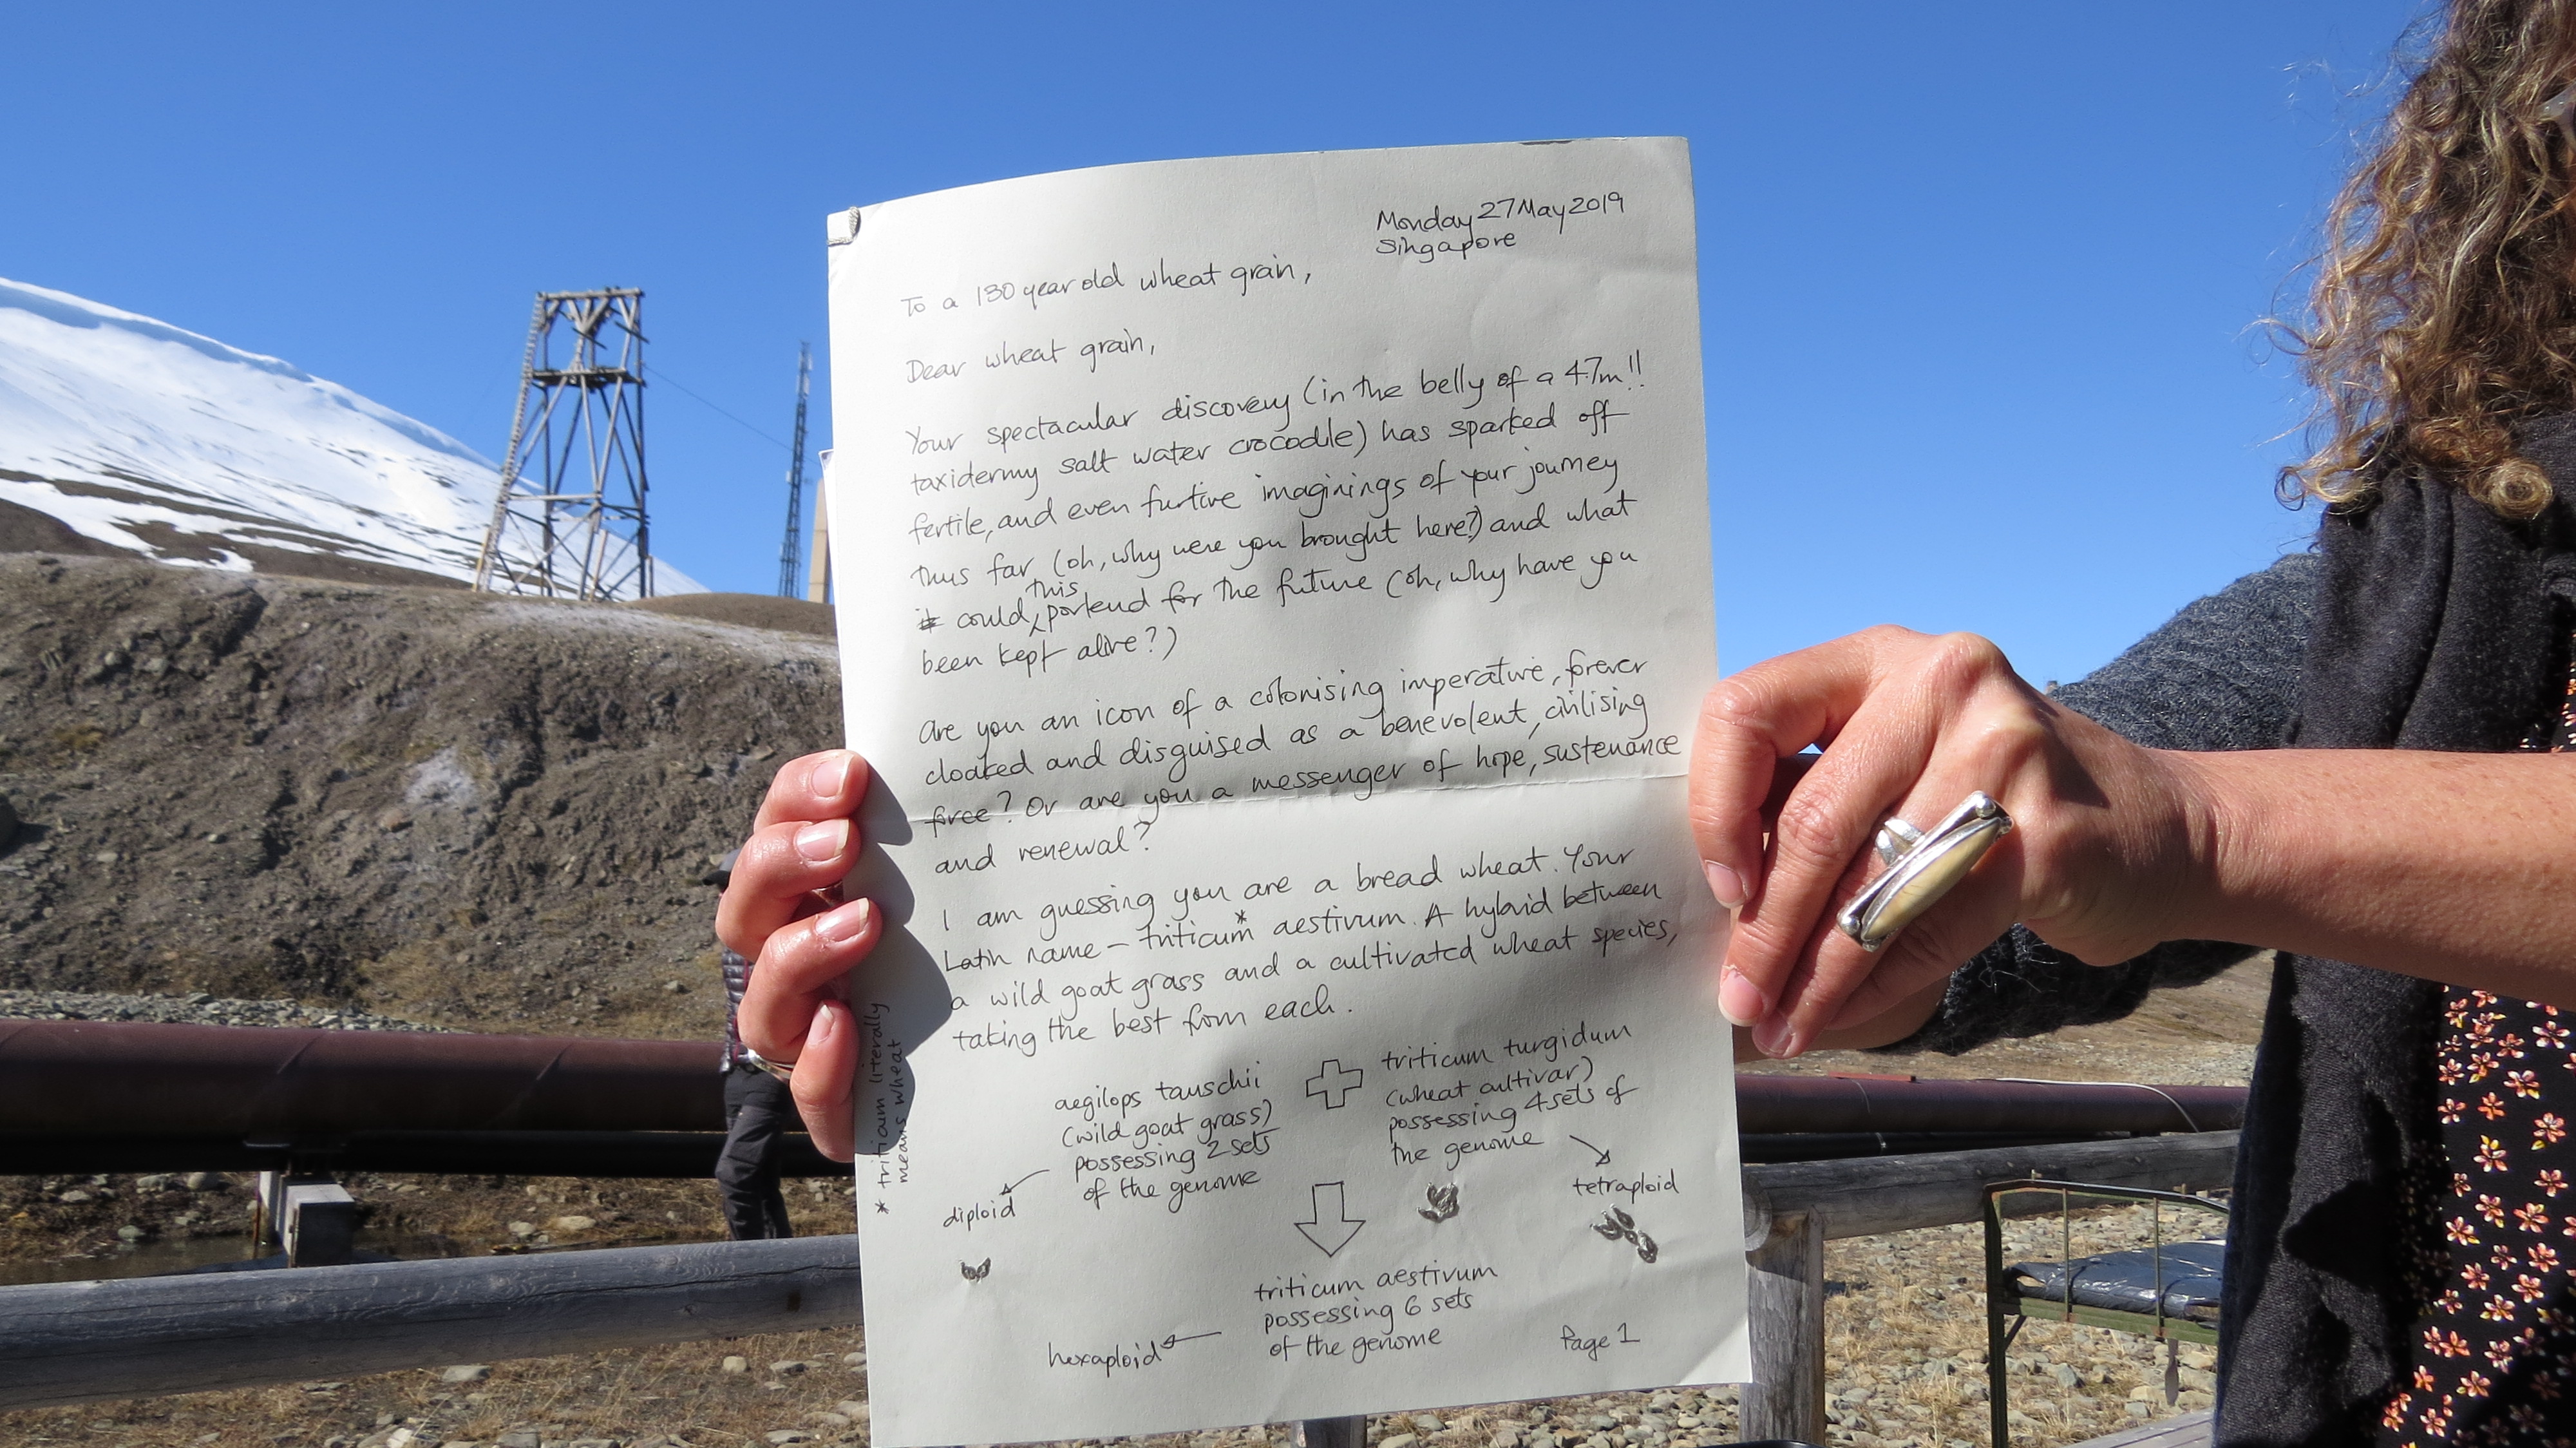 Monday 27 May 2019
Singapore
To a 130 year old wheat grain,
Dear wheat grain,
Your spectacular discovery (in the belly of a 4.7m!!
taxidermy salt water crocodile) has sparked off
fertile, and even furtive imaginings of your journey
thus far (oh, why were you brought here?) and what
this
could portend for the future (oh, why have you
been kept alive?)
Are you an icon of a colonising imperative, forever
cloaked and disguised as a benevolent, civilising
free? Or are you a messenger of hope, sustenance
and renewal?
I am guessing you are a bread wheat. Your
Latin name – triticum* aestivum. A hybrid between
a wild goat grass and a cultivated wheat species,
taking the best from each.
aegilops tauschii
(wild goat grass)
possessing 2 sets
of the genome
diploid
triticum turgidum
(wheat cultivar)
possessing 4 sets of
the genome
tetraploid
triticum aestivum
possessing 6 sets
of the genome
hexaploid
Page 1
* triticum literally
means wheat